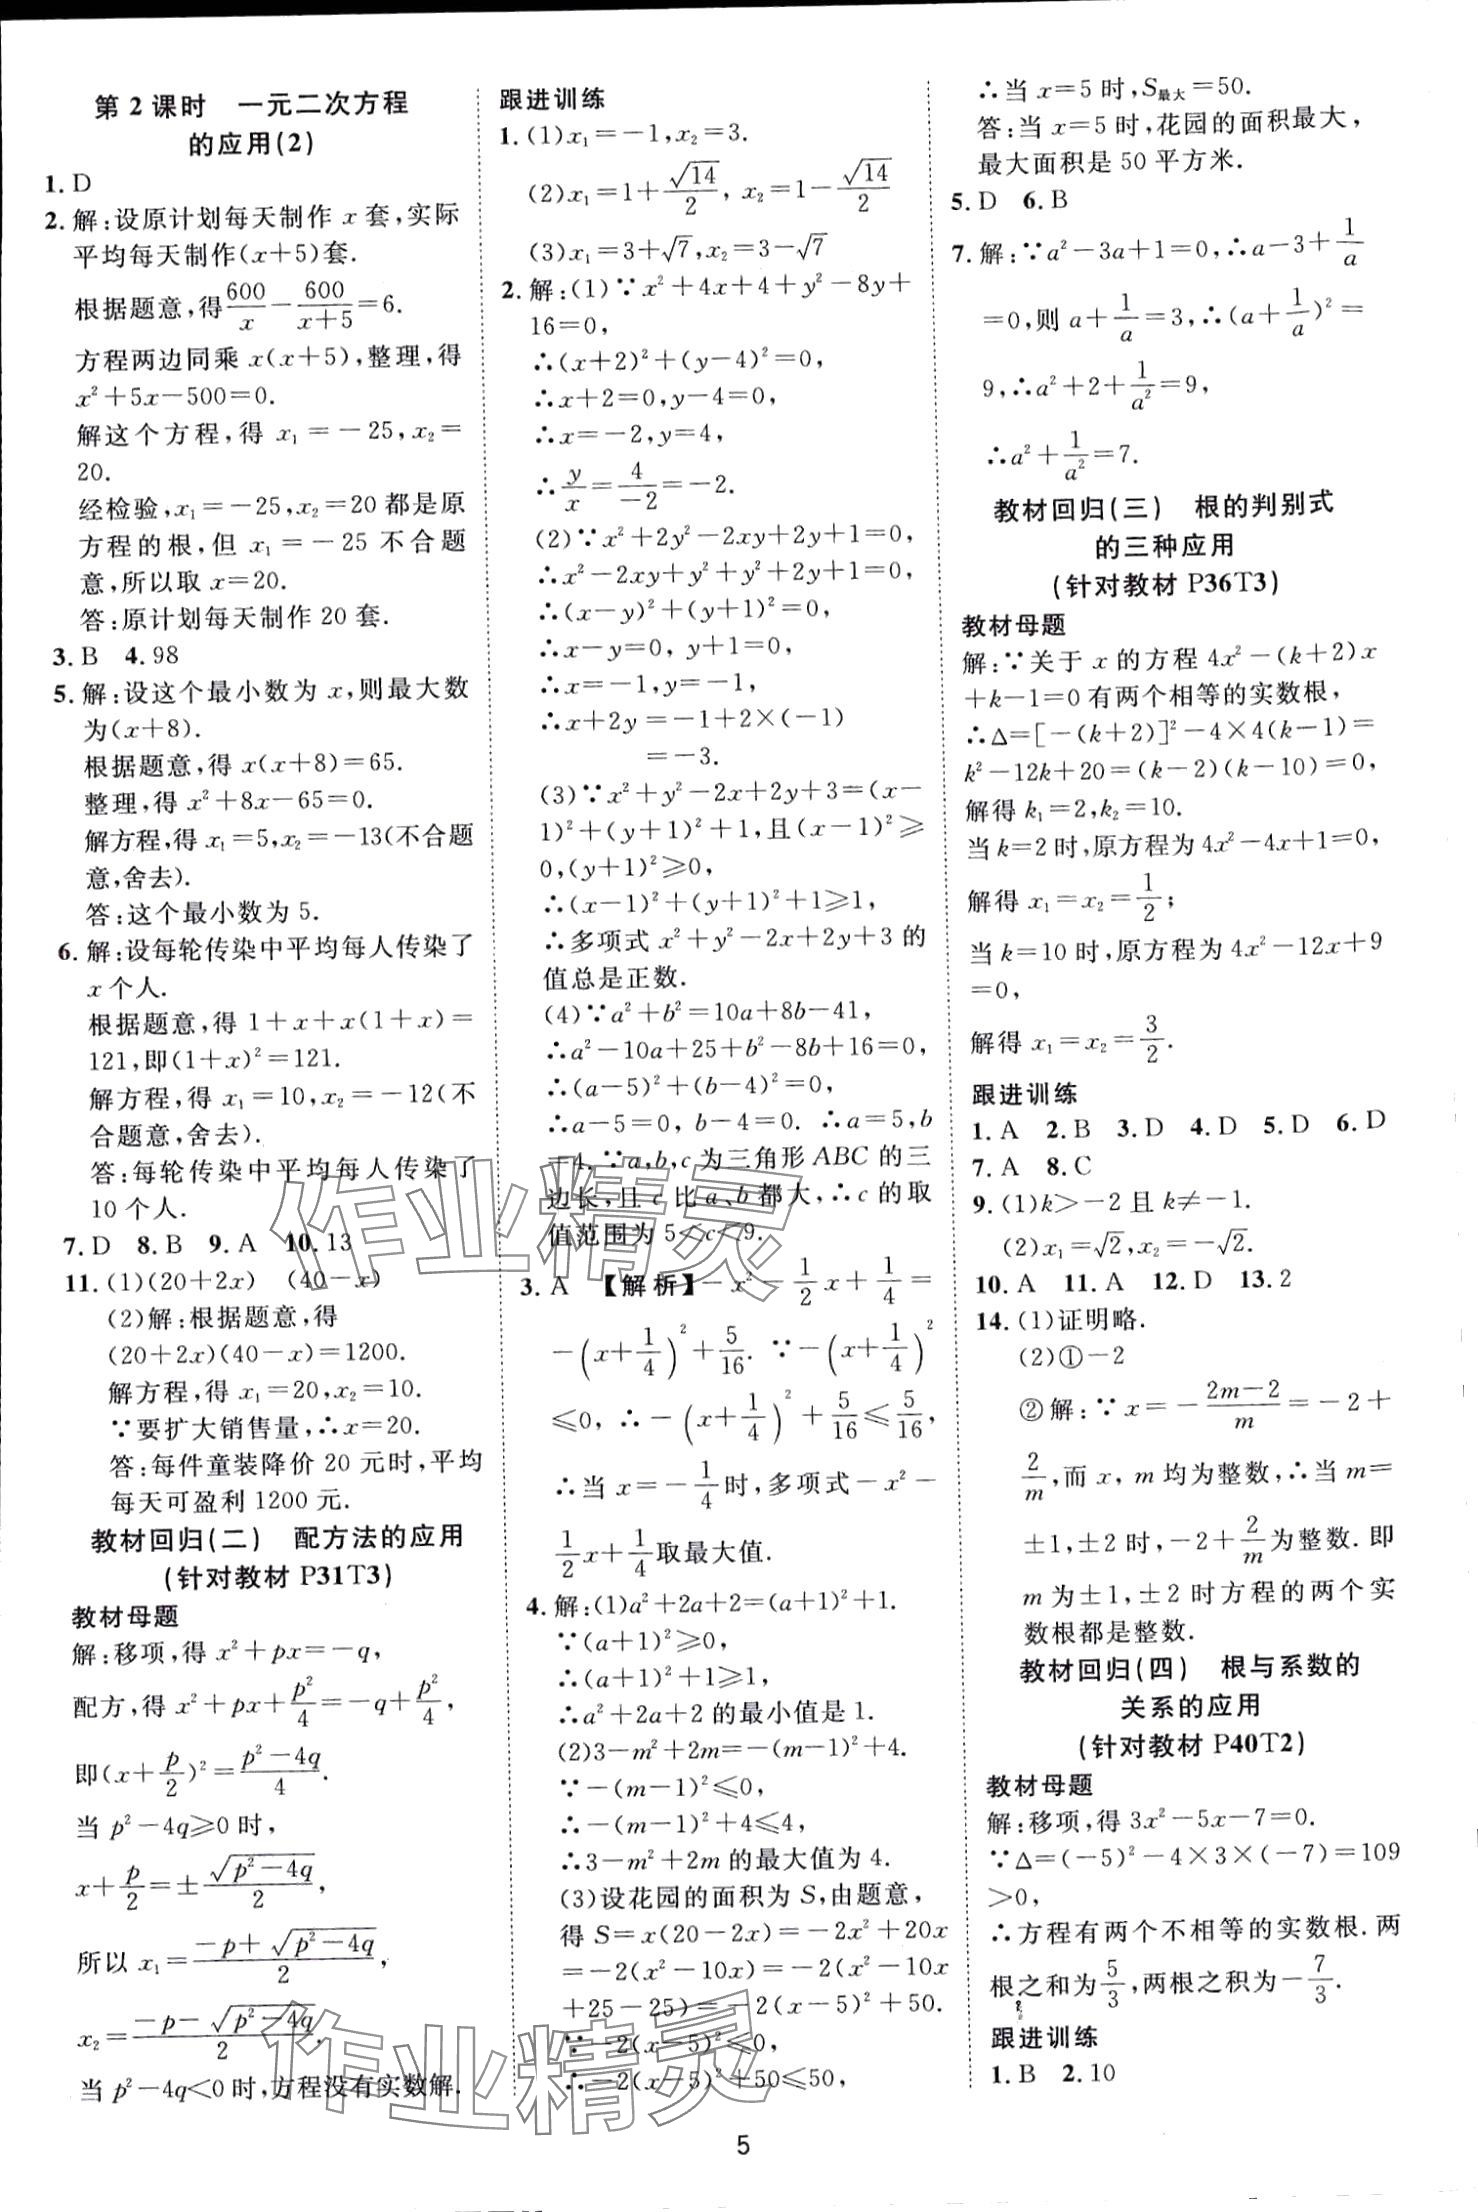 第2课时　一元二次方程
的应用(2)
1.D
2.解:设原计划每天制作 x 套,实际
平均每天制作(x+5)套.
根据题意,得600/x−600/(x+5)=6.
方程两边同乘 x(x+5),整理,得
x²+5x−500=0.
解这个方程,得 x₁=−25,x₂=
20.
经检验,x₁=−25,x₂=20 都是原
方程的根,但 x₁=−25 不合题
意,所以取 x=20.
答:原计划每天制作 20 套.
3.B 4.98
5.解:设这个最小数为 x,则最大数
为(x+8).
根据题意,得 x(x+8)=65.
整理,得 x²+8x−65=0.
解方程,得 x₁=5,x₂=−13(不合题
意,舍去).
答:这个最小数为 5.
6.解:设每轮传染中平均每人传染了
x 个人.
根据题意,得 1+x+x(1+x)=
121,即(1+x)²=121.
解方程,得 x₁=10,x₂=−12(不
合题意,舍去).
答:每轮传染中平均每人传染了
10 个人.
7.D 8.B 9.A 10.13
11.(1)(20+2x) (40−x)
(2)解:根据题意,得
(20+2x)(40−x)=1200.
解方程,得 x₁=20,x₂=10.
∵要扩大销售量,∴x=20.
答:每件童装降价 20 元时,平均
每天可盈利 1200 元.
教材回归(二)　配方法的应用
(针对教材 P31T3)
教材母题
解:移项,得 x²+px=−q,
配方,得 x²+px+p²/4=−q+p²/4,
即(x+p/2)²=(p²−4q)/4.
当 p²−4q≥0 时,
x+p/2=±√(p²−4q)/2,
所以 x₁=(−p+√(p²−4q))/2,
x₂=(−p−√(p²−4q))/2.
当 p²−4q<0 时,方程没有实数解.
跟进训练
1.(1)x₁=−1,x₂=3.
(2)x₁=1+√14/2, x₂=1−√14/2
(3)x₁=3+√7,x₂=3−√7
2.解:(1)∵x²+4x+4+y²−8y+
16=0,
∴(x+2)²+(y−4)²=0,
∴x+2=0,y−4=0,
∴x=−2,y=4,
∴y/x=4/−2=−2.
(2)∵x²+2y²−2xy+2y+1=0,
∴x²−2xy+y²+y²+2y+1=0,
∴(x−y)²+(y+1)²=0,
∴x−y=0, y+1=0,
∴x=−1,y=−1,
∴x+2y=−1+2×(−1)
=−3.
(3)∵x²+y²−2x+2y+3=(x−
1)²+(y+1)²+1,且(x−1)²≥
0,(y+1)²≥0,
∴(x−1)²+(y+1)²+1≥1,
∴多项式 x²+y²−2x+2y+3 的
值总是正数.
(4)∵a²+b²=10a+8b−41,
∴a²−10a+25+b²−8b+16=0,
∴(a−5)²+(b−4)²=0,
∴a−5=0, b−4=0. ∴a=5,b
=4.∵a,b,c 为三角形 ABC 的三
边长,且 c 比 a、b 都大,∴c 的取
值范围为 5<c<9.
3.A 【解析】−x²−1/2x+1/4=
−(x+1/4)²+5/16. ∵−(x+1/4)²
≤0, ∴−(x+1/4)²+5/16≤5/16,
∴当 x=−1/4时,多项式−x²−
1/2x+1/4取最大值.
4.解:(1)a²+2a+2=(a+1)²+1.
∵(a+1)²≥0,
∴(a+1)²+1≥1,
∴a²+2a+2 的最小值是 1.
(2)3−m²+2m=−(m−1)²+4.
∵−(m−1)²≤0,
∴−(m−1)²+4≤4,
∴3−m²+2m 的最大值为 4.
(3)设花园的面积为 S,由题意,
得 S=x(20−2x)=−2x²+20x
=−2(x²−10x)=−2(x²−10x
+25−25)=−2(x−5)²+50.
∵−2(x−5)²≤0,
∴−2(x−5)²+50≤50,
∴当 x=5 时,S最大=50.
答:当 x=5 时,花园的面积最大,
最大面积是 50 平方米.
5.D 6.B
7.解:∵a²−3a+1=0,∴a−3+1/a
=0,则 a+1/a=3,∴(a+1/a)²=
9,∴a²+2+1/a²=9,
∴a²+1/a²=7.
教材回归(三)　根的判别式
的三种应用
(针对教材 P36T3)
教材母题
解:∵关于 x 的方程 4x²−(k+2)x
+k−1=0 有两个相等的实数根,
∴Δ=[−(k+2)]²−4×4(k−1)=
k²−12k+20=(k−2)(k−10)=0,
解得 k₁=2,k₂=10.
当 k=2 时,原方程为 4x²−4x+1=0,
解得 x₁=x₂=1/2;
当 k=10 时,原方程为 4x²−12x+9
=0,
解得 x₁=x₂=3/2.
跟进训练
1.A 2.B 3.D 4.D 5.D 6.D
7.A 8.C
9.(1)k>−2 且 k≠−1.
(2)x₁=√2,x₂=−√2.
10.A 11.A 12.D 13.2
14.(1)证明略.
(2)①−2
②解:∵x=−(2m−2)/m=−2+
2/m,而 x, m 均为整数,∴当 m=
±1,±2 时,−2+2/m为整数.即
m 为±1,±2 时方程的两个实
数根都是整数.
教材回归(四)　根与系数的
关系的应用
(针对教材 P40T2)
教材母题
解:移项,得 3x²−5x−7=0.
∵Δ=(−5)²−4×3×(−7)=109
>0,
∴方程有两个不相等的实数根.两
根之和为5/3,两根之积为−7/3.
跟进训练
1.B 2.10
作业精灵
作业精灵
5